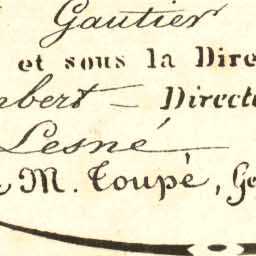 Gautier
et sous la Dire
nbert — Directe
Lesné
M. Toupé, Ge